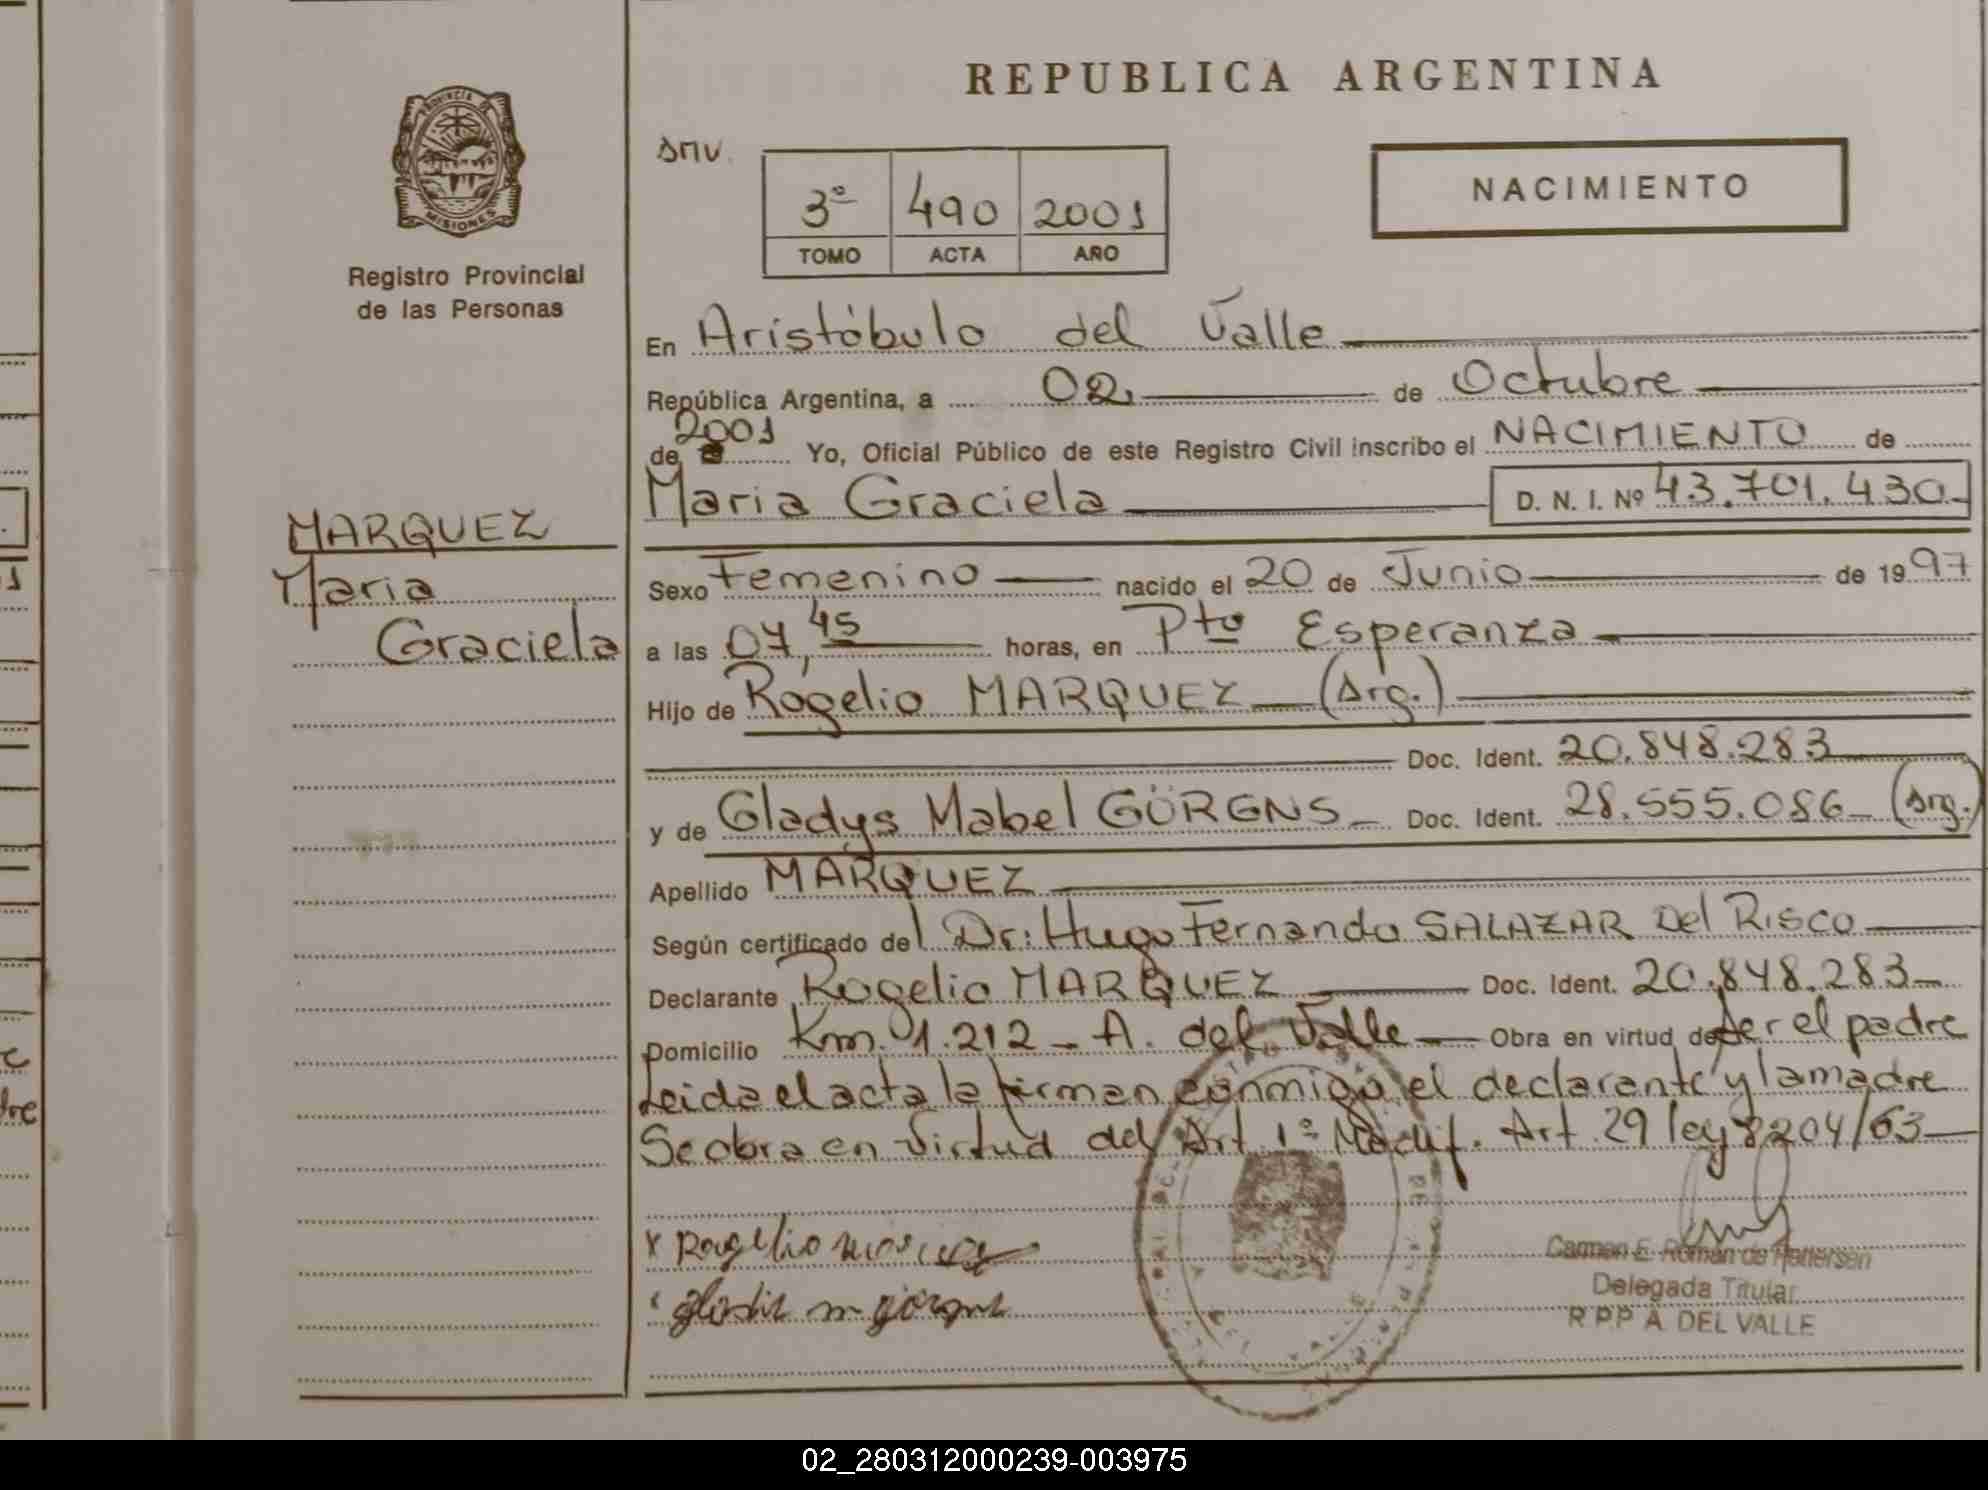 REPUBLICA ARGENTINA
PROVINCIA DE
MISIONES
Registro Provincial
de las Personas
3º 490 2001
TOMO ACTA AÑO
NACIMIENTO
MARQUEZ
Maria
Graciela
En Aristóbulo del Valle
República Argentina, a 02 de Octubre
de 2001 Yo, Oficial Público de este Registro Civil inscribo el NACIMIENTO de
Maria Graciela D. N. I. Nº 43.701.430
Sexo Femenino nacido el 20 de Junio de 1997
a las 07,45 horas, en Pto Esperanza
Hijo de Rogelio MARQUEZ (Arg.)
Doc. Ident. 20.848.283
y de Gladys Mabel GÖRGNS Doc. Ident. 28.555.086 (Arg.)
Apellido MARQUEZ
Según certificado del Dr: Hugo Fernando SALAZAR Del RISCO
Declarante Rogelio MARQUEZ Doc. Ident. 20.848.283
Domicilio Km. 1.212 - A. del Valle Obra en virtud de ser el padre
Leida el acta la firman conmigo el declarante y la madre
Se obra en virtud del Art 1º Modif. Art. 29 ley 8204/63
Carmen E. Román de
Delegada Titular
R.P.P A. DEL VALLE
02_280312000239-003975